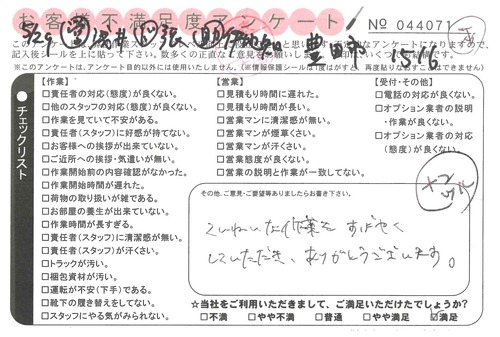 お客様不満足度アンケート
No 044071
【作業】
□責任者の対応(態度)が良くない。
□他のスタッフの対応(態度)が良くない。
□作業を見ていて不安がある。
□責任者(スタッフ)に好感が持てない。
□お客様への挨拶が出来ていない。
□ご近所への挨拶・気遣いが無い。
□作業開始前の内容確認がなかった。
□作業開始時間が遅れた。
□荷物の取り扱いが雑である。
□お部屋の養生が出来ていない。
□作業時間が長すぎる。
□責任者(スタッフ)に清潔感が無い。
□責任者(スタッフ)が汗くさい。
□トラックが汚い。
□梱包資材が汚い。
□運転が不安(下手)である。
□靴下の履き替えをしてない。
□スタッフにやる気がみられない。
【営業】
□見積もり時間に遅れた。
□見積もり時間が長い。
□営業マンに清潔感が無い。
□営業マンが煙草くさい。
□営業マンが汗くさい。
□営業態度が良くない。
□営業の説明と作業が一致してない。
【受付・その他】
□電話の対応が良くない。
□オプション業者の説明
・作業が良くない。
□オプション業者の対応
(態度)が良くない。
チェックリスト
その他、ご意見・ご要望等ありましたらお書き下さい。
ていねいな作業を すばやく
していただき、ありがとうございます。
☆当社をご利用いただきまして、ご満足いただけたでしょうか?
□不満 □やや不満 □普通 □やや満足 ☑満足